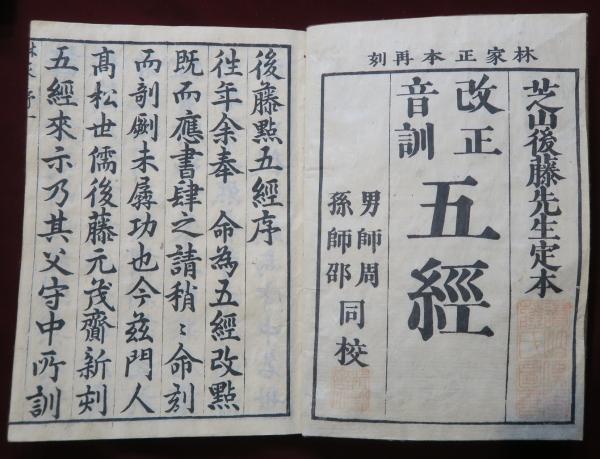 林家正本再刻
芝山後藤先生定本
改正
音訓
五經
男師周
孫師邵
同校
後藤點五經序
往年余奉　命為五經改點
既而應書肆之請稍〻命刻
而剞劂未孱功也今玆門人
髙松世儒後藤元茂齎新刻
五經來示乃其父守中所訓